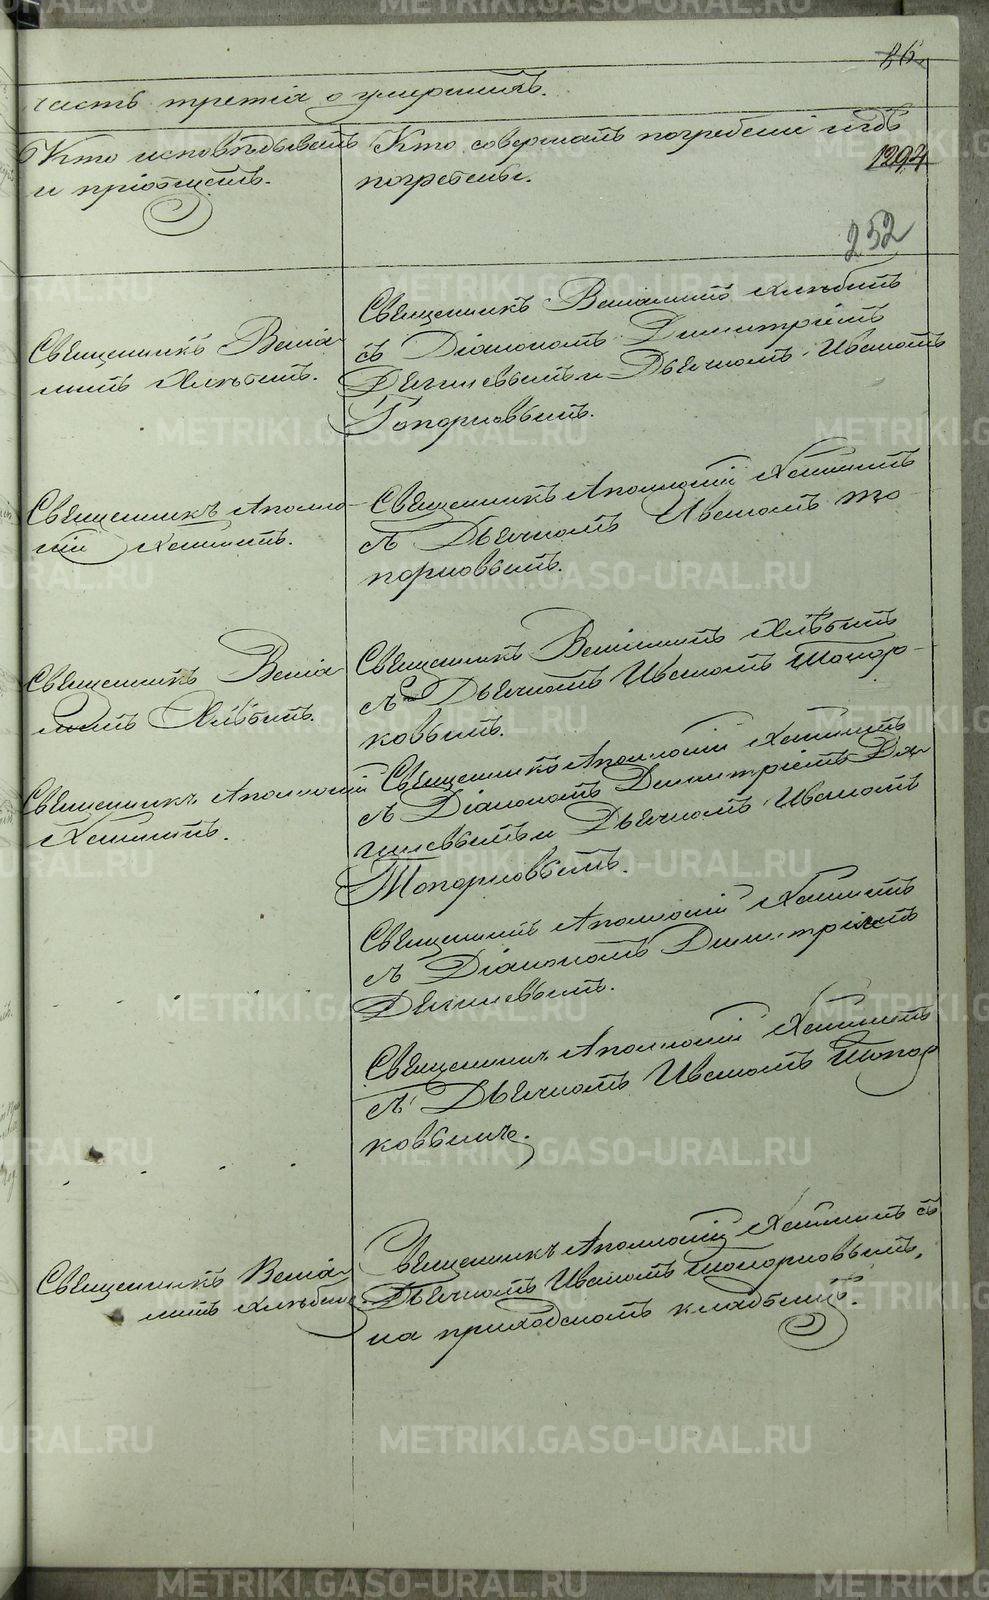 86.
часть третія о умершихъ.
Кто исповѣдывалъ
и пріобщалъ.
Кто совершалъ погребеніе и гдѣ
погребены.
1294
252
Священникъ Веніа-
минъ Хлѣбинъ.
Священникъ Веніаминъ Хлѣбинъ
съ Діакономъ Димитріемъ
и Дьячкомъ Иваномъ
Топорковымъ.
Священникъ Аполло-
ній
Священникъ Аполлоній
съ Дьячкомъ Иваномъ То-
порковымъ.
Священникъ Веніа-
минъ Хлѣбинъ.
Священникъ Веніаминъ Хлѣбинъ
съ Дьячкомъ Иваномъ Топор-
ковымъ.
Священникъ Аполлоній
Священникъ Аполлоній
съ Діакономъ Димитріемъ
и Дьячкомъ Иваномъ
Топорковымъ.
Священникъ Аполлоній
съ Діакономъ Димитріемъ
Священникъ Аполлоній
съ Дьячкомъ Иваномъ Топор
ковымъ.
Священникъ Веніа-
минъ Хлѣбинъ.
Священникъ Аполлоній съ
Дьячкомъ Иваномъ Топорковымъ,
на приходскомъ кладбищѣ.
METRIKI.GASO-URAL.RU